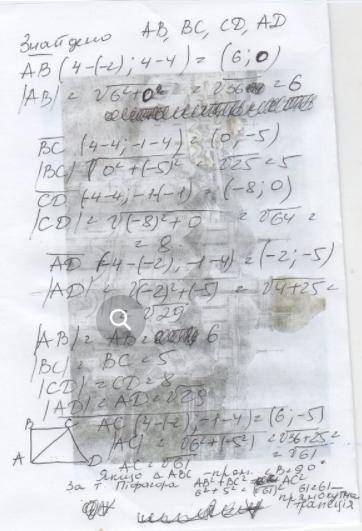 Знайдено AB, BC, CD, AD
AB (4-(-2); 4-4) = (6; 0)
|AB| = √6²+0² = √36 = 6
BC (4-4; -1-4) = (0; -5)
|BC| √0²+(-5)² = √25 = 5
CD (-4-4; -1-(-1)) = (-8; 0)
|CD| = √(-8)²+0 = √64 =
= 8
AD (-4-(-2), -1-4) = (-2; -5)
|AD| = √(-2)²+(-5) = √4+25 =
√29
|AB| = AB = 6
|BC| = BC = 5
|CD| = CD = 8
|AD| = AD = √29
B C AC (4-(-2), -1-4) = (6; -5)
|AC| = √6²+(-5²) = √36+25 =
A D AC = √61 = √61
Якщо Δ ABC - прям. ∠B = 90°
За т. Піфагора AB²+BC² = AC²
6²+5² = (√61)² 61=61 -
прямокутна
трапеція